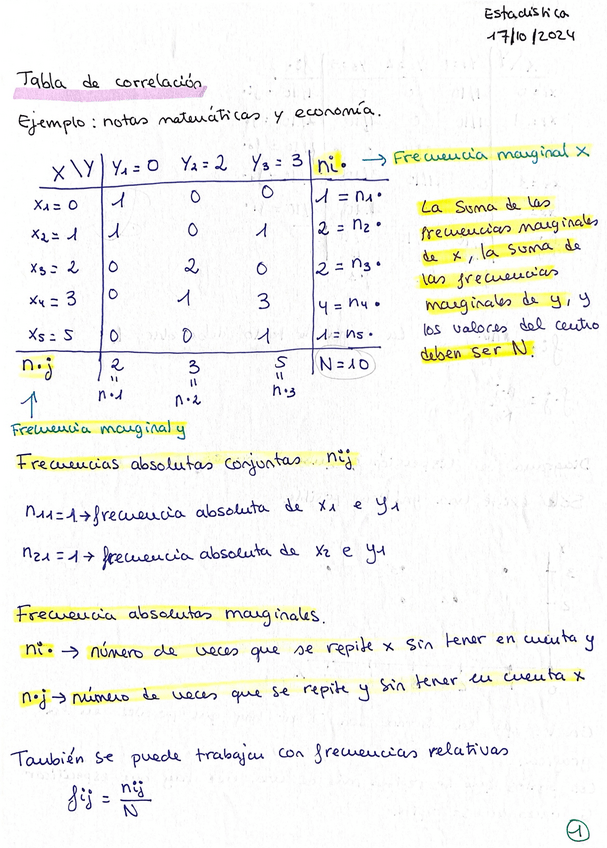 Estadística
17/10/2024
Tabla de correlación
Ejemplo: notas matemáticas y economía.
X\Y Y1=0 Y2=2 Y3=3 ni• → Frecuencia marginal x
x1=0 1 0 0 1=n1•
x2=1 1 0 1 2=n2•
x3=2 0 2 0 2=n3•
x4=3 0 1 3 4=n4•
x5=5 0 0 1 1=n5•
n•j 2 3 5 N=10
" " "
n•1 n•2 n•3
La suma de las
frecuencias marginales
de x, la suma de
las frecuencias
marginales de y, y
los valores del centro
deben ser N.
↑
Frecuencia marginal y
Frecuencias absolutas conjuntas nij
n11=1→frecuencia absoluta de x1 e y1
n21=1→ frecuencia absoluta de x2 e y1
Frecuencia absolutas marginales.
ni• → número de veces que se repite x sin tener en cuenta y
n•j→ número de veces que se repite y sin tener en cuenta x
También se puede trabajar con frecuencias relativas
fij = nij/N
1